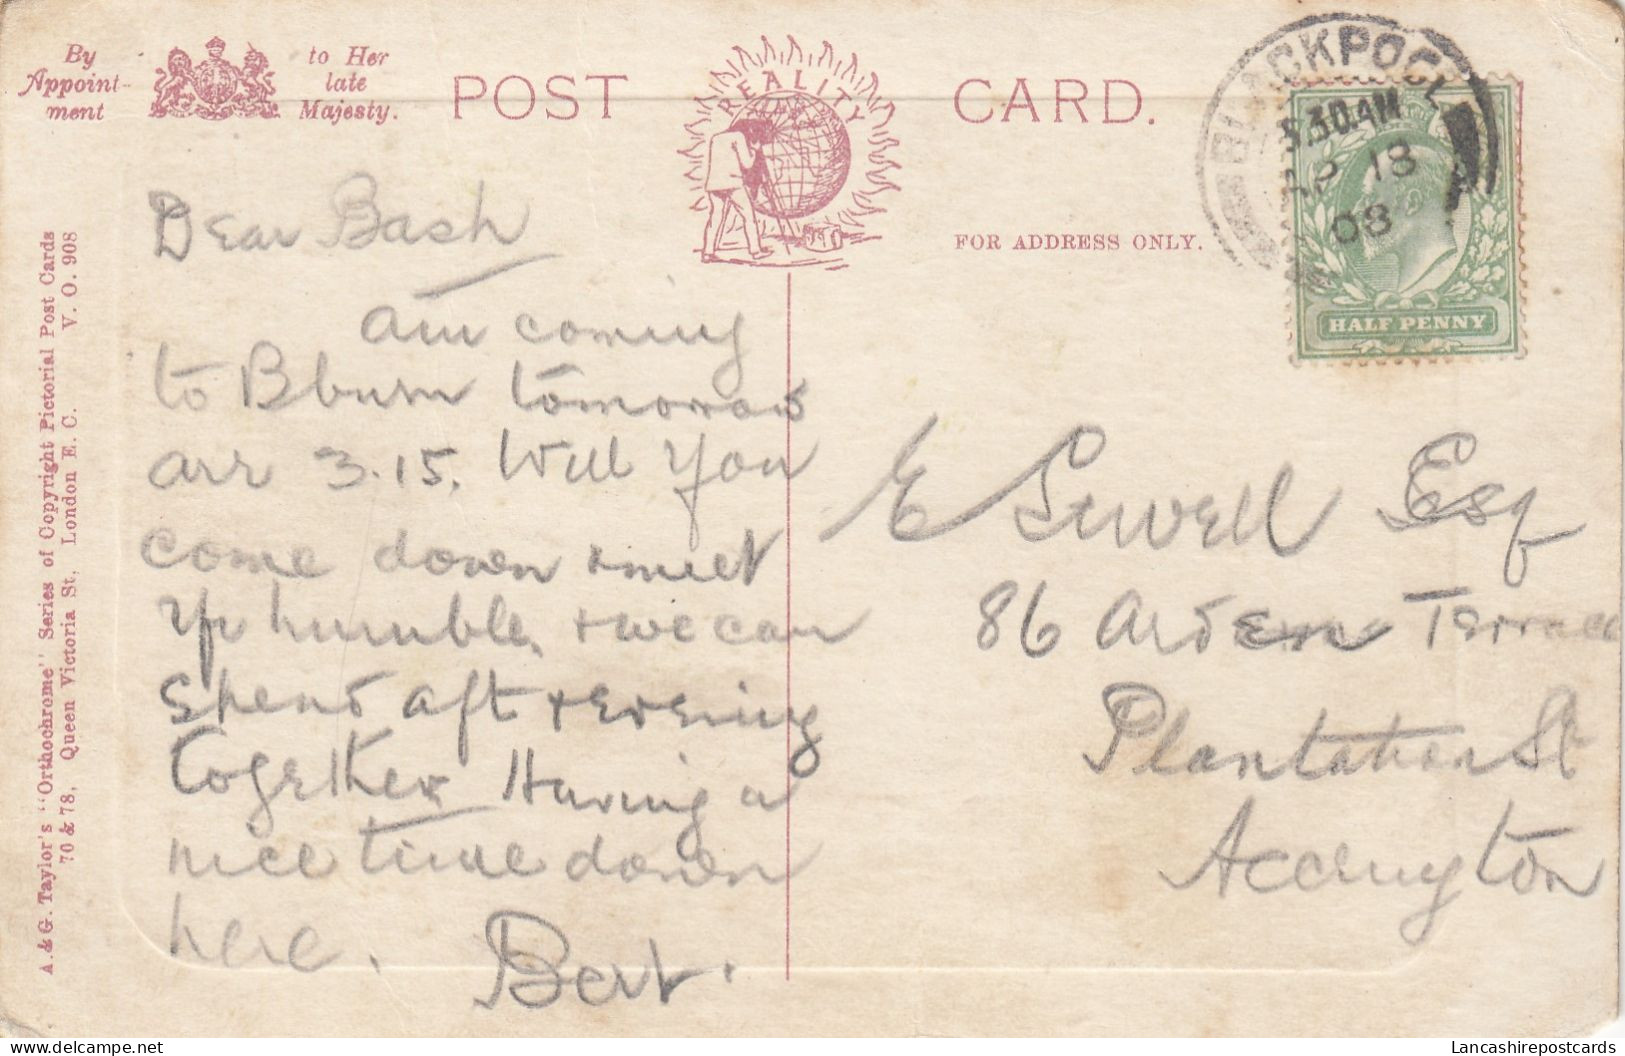 By
Appoint-
ment
to Her
late
Majesty.
POST CARD.
REALITY
FOR ADDRESS ONLY.
BLACKPOOL
.30 AM
AP 18
08
HALF PENNY
A. & G. Taylor's "Orthochrome" Series of Copyright Pictorial Post Cards
70 & 78, Queen Victoria St, London E. C. V. O. 908
Dear Bash
am coming
to Bburn tomorrow
arr 3.15. Will you
come down + meet
yr humble, + we can
spend aft + evening
together Having a
nice time down
here.
Bert.
E Sewell Esq
86 Arden Terrace
Plantation St
Accrington
Lancashirepostcards